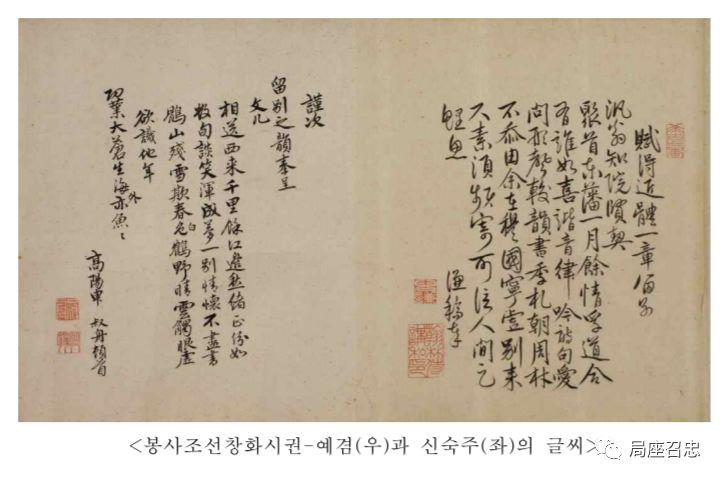 賦得近體一章留別
汎翁知院賢契
聚首東藩一月餘情孚道合
有誰如喜諧音律吟詩句愛
問形聲較韻書季札朝周
不忝由余在國寧虛別来
尺素須頻寄可人間乏
鯉魚
謙稿奉
謹次
留別之韻奉呈
文几
相送西来千里餘江邊愁緒正紛如
數句談笑渾成夢一別情懷不盡書
鶴山殘雪欺春色鶴野晴雲觸眼虛
欲識他年
功業大蒼生海外亦魚〻
高陽申叔舟頓首
<봉사조선창화시권-예겸(우)과 신숙주(좌)의 글씨>
局座召忠